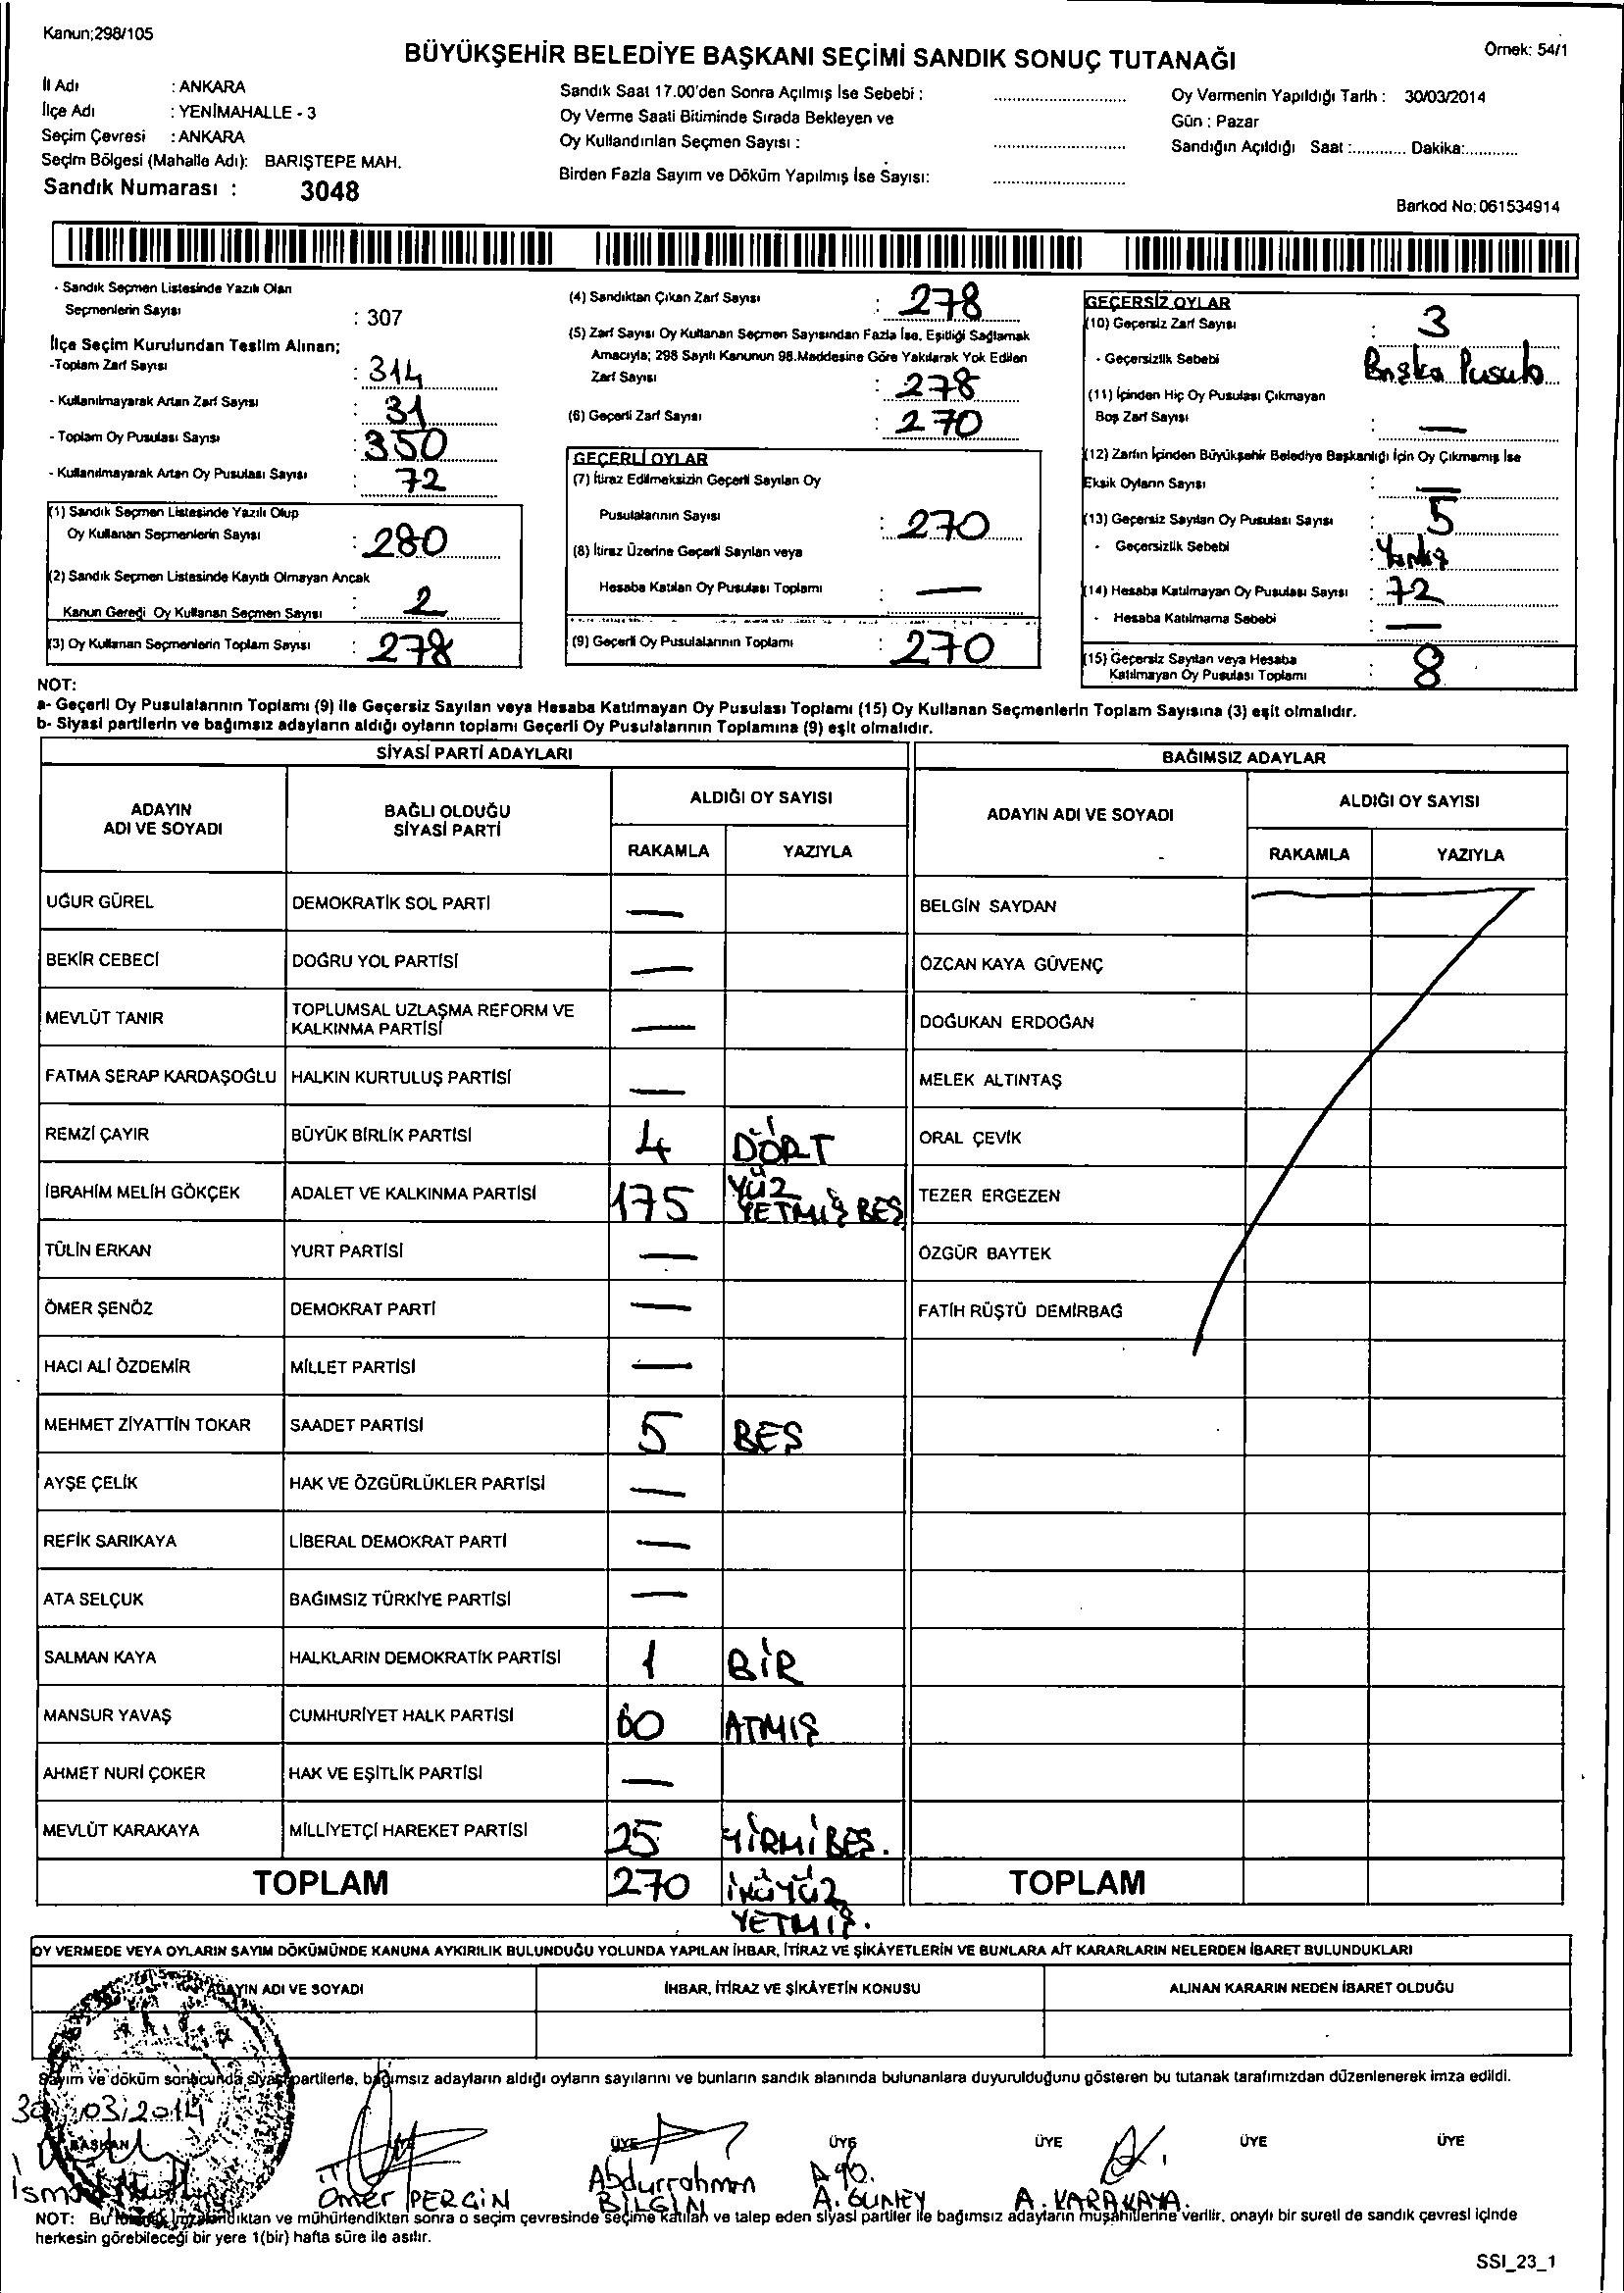 Kanun;298/105
Örnek: 54/1
BÜYÜKŞEHİR BELEDİYE BAŞKANI SEÇİMİ SANDIK SONUÇ TUTANAĞI
İl Adı : ANKARA
İlçe Adı : YENİMAHALLE - 3
Seçim Çevresi : ANKARA
Seçim Bölgesi (Mahalle Adı): BARIŞTEPE MAH.
Sandık Numarası : 3048
Sandık Saat 17.00'den Sonra Açılmış İse Sebebi :
Oy Verme Saati Bitiminde Sırada Bekleyen ve
Oy Kullandırılan Seçmen Sayısı :
Birden Fazla Sayım ve Döküm Yapılmış İse Sayısı:
Oy Vermenin Yapıldığı Tarih : 30/03/2014
Gün : Pazar
Sandığın Açıldığı Saat :............ Dakika:............
Barkod No: 061534914
- Sandık Seçmen Listesinde Yazılı Olan
Seçmenlerin Sayısı : 307
İlçe Seçim Kurulundan Teslim Alınan;
-Toplam Zarf Sayısı : 314
- Kullanılmayarak Artan Zarf Sayısı : 31
- Toplam Oy Pusulası Sayısı : 350
- Kullanılmayarak Artan Oy Pusulası Sayısı : 72
(1) Sandık Seçmen Listesinde Yazılı Olup
Oy Kullanan Seçmenlerin Sayısı : 280
(2) Sandık Seçmen Listesinde Kayıtlı Olmayan Ancak
Kanun Gereği Oy Kullanan Seçmen Sayısı : 2
(3) Oy Kullanan Seçmenlerin Toplam Sayısı : 278
(4) Sandıktan Çıkan Zarf Sayısı : 278
(5) Zarf Sayısı Oy Kullanan Seçmen Sayısından Fazla İse, Eşitliği Sağlamak
Amacıyla; 298 Sayılı Kanunun 98.Maddesine Göre Yakılarak Yok Edilen
Zarf Sayısı : 278
(6) Geçerli Zarf Sayısı : 270
GEÇERLİ OYLAR
(7) İtiraz Edilmeksizin Geçerli Sayılan Oy
Pusulalarının Sayısı : 270
(8) İtiraz Üzerine Geçerli Sayılan veya
Hesaba Katılan Oy Pusulası Toplamı : —
(9) Geçerli Oy Pusulalarının Toplamı : 270
GEÇERSİZ OYLAR
(10) Geçersiz Zarf Sayısı : 3
- Geçersizlik Sebebi Başka Pusula
(11) İçinden Hiç Oy Pusulası Çıkmayan
Boş Zarf Sayısı : —
(12) Zarfın İçinden Büyükşehir Belediye Başkanlığı İçin Oy Çıkmamış İse
Eksik Oyların Sayısı : —
(13) Geçersiz Sayılan Oy Pusulası Sayısı : 5
- Geçersizlik Sebebi :
(14) Hesaba Katılmayan Oy Pusulası Sayısı : 72
- Hesaba Katılmama Sebebi : —
(15) Geçersiz Sayılan veya Hesaba
Katılmayan Oy Pusulası Toplamı : 8
NOT:
a- Geçerli Oy Pusulalarının Toplamı (9) ile Geçersiz Sayılan veya Hesaba Katılmayan Oy Pusulası Toplamı (15) Oy Kullanan Seçmenlerin Toplam Sayısına (3) eşit olmalıdır.
b- Siyasi partilerin ve bağımsız adayların aldığı oyların toplamı Geçerli Oy Pusulalarının Toplamına (9) eşit olmalıdır.
SİYASİ PARTİ ADAYLARI
ADAYIN ADI VE SOYADI BAĞLI OLDUĞU SİYASİ PARTİ ALDIĞI OY SAYISI
RAKAMLA YAZIYLA
UĞUR GÜREL DEMOKRATİK SOL PARTİ —
BEKİR CEBECİ DOĞRU YOL PARTİSİ —
MEVLÜT TANIR TOPLUMSAL UZLAŞMA REFORM VE KALKINMA PARTİSİ —
FATMA SERAP KARDAŞOĞLU HALKIN KURTULUŞ PARTİSİ —
REMZİ ÇAYIR BÜYÜK BİRLİK PARTİSİ 4 DÖRT
İBRAHİM MELİH GÖKÇEK ADALET VE KALKINMA PARTİSİ 175 YÜZ YETMİŞ BEŞ
TÜLİN ERKAN YURT PARTİSİ —
ÖMER ŞENÖZ DEMOKRAT PARTİ —
HACI ALİ ÖZDEMİR MİLLET PARTİSİ —
MEHMET ZİYATTİN TOKAR SAADET PARTİSİ 5 BEŞ
AYŞE ÇELİK HAK VE ÖZGÜRLÜKLER PARTİSİ —
REFİK SARIKAYA LİBERAL DEMOKRAT PARTİ —
ATA SELÇUK BAĞIMSIZ TÜRKİYE PARTİSİ —
SALMAN KAYA HALKLARIN DEMOKRATİK PARTİSİ 1 BİR
MANSUR YAVAŞ CUMHURİYET HALK PARTİSİ 60 ATMIŞ
AHMET NURİ ÇOKER HAK VE EŞİTLİK PARTİSİ —
MEVLÜT KARAKAYA MİLLİYETÇİ HAREKET PARTİSİ 25 YİRMİ BEŞ.
TOPLAM 270 İKİYÜZ YETMİŞ.
BAĞIMSIZ ADAYLAR
ADAYIN ADI VE SOYADI ALDIĞI OY SAYISI
RAKAMLA YAZIYLA
BELGİN SAYDAN
ÖZCAN KAYA GÜVENÇ
DOĞUKAN ERDOĞAN
MELEK ALTINTAŞ
ORAL ÇEVİK
TEZER ERGEZEN
ÖZGÜR BAYTEK
FATİH RÜŞTÜ DEMİRBAĞ
TOPLAM
OY VERMEDE VEYA OYLARIN SAYIM DÖKÜMÜNDE KANUNA AYKIRILIK BULUNDUĞU YOLUNDA YAPILAN İHBAR, İTİRAZ VE ŞİKÂYETLERİN VE BUNLARA AİT KARARLARIN NELERDEN İBARET BULUNDUKLARI
ADAYIN ADI VE SOYADI İHBAR, İTİRAZ VE ŞİKÂYETİN KONUSU ALINAN KARARIN NEDEN İBARET OLDUĞU
Sayım ve döküm sonucunda siyasi partilerle, bağımsız adayların aldığı oyların sayılarını ve bunların sandık alanında bulunanlara duyurulduğunu gösteren bu tutanak tarafımızdan düzenlenerek imza edildi.
30/03/2014
BAŞKAN ÜYE ÜYE ÜYE ÜYE ÜYE ÜYE
Ömer PERGİN Abdurrahman BİLGİN A. GÜNEY A. KARAKAYA.
NOT: Bu tutanak imzalandıktan ve mühürlendikten sonra o seçim çevresinde seçime katılan ve talep eden siyasi partiler ile bağımsız adayların müşahitlerine verilir, onaylı bir sureti de sandık çevresi içinde
herkesin görebileceği bir yere 1(bir) hafta süre ile asılır.
SSI_23_1